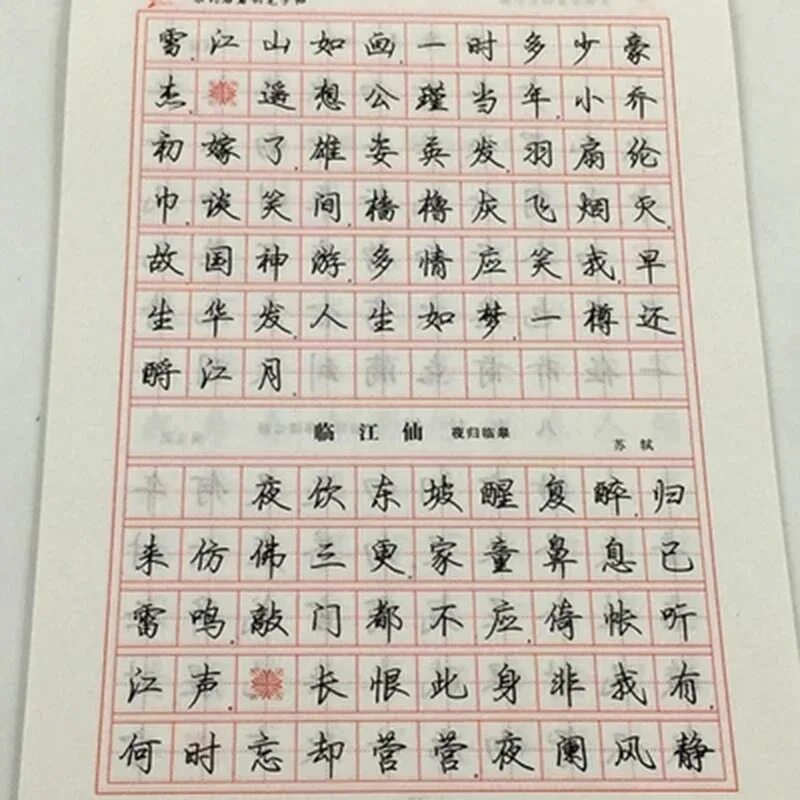 雪.江山如画.一时多少豪
杰.遥想公瑾当年.小乔
初嫁了.雄姿英发.羽扇纶
巾.谈笑间.樯橹灰飞烟灭.
故国神游.多情应笑我.早
生华发.人生如梦.一樽还
酹江月.
临江仙 夜归临皋
苏轼
夜饮东坡醒复醉.归
来仿佛三更.家童鼻息已
雷鸣.敲门都不应.倚帐听
江声.长恨此身非我有.
何时忘却营营.夜阑风静